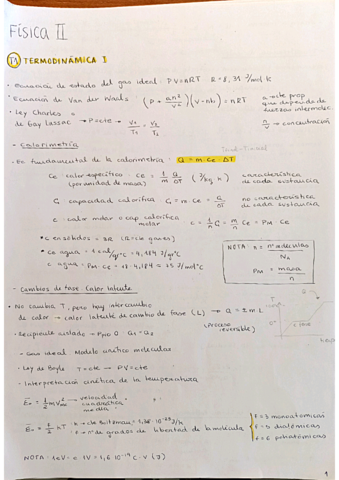 Física II
T1 TERMODINÁMICA I
· Ecuación de estado del gas ideal: PV=nRT R=8,31 J/mol·K
· Ecuación de Van der Waals: (P + an²/v²)(V-nb) = nRT
a → cte prop que depende de fuerzas intermolec.
n/v → concentración
· Ley Charles o de Gay Lussac → P=cte → V₁/T₁ = V₂/T₂
- Calorimetría
· Ec fundamental de la calorimetría: Q = m·Ce ΔT
Ce calor específico · Ce = 1/m Q/ΔT (J/kg K) característica de cada sustancia
(por unidad de masa)
C capacidad calorífica C = m Ce = Q/ΔT no característica de cada sustancia
c calor molar o cap. calorífica molar c = 1/n C = m/n Ce = PM · Ce
NOTA: n = nº moléculas/NA
PM = masa/n
- Cambios de fase. Calor latente
· No cambia T, pero hay intercambio de calor → calor latente de cambio de fase (L) → Q = ± m L
(Proceso reversible)
- gas ideal. Modelo cinético moléculas
· Ley de Boyle T=cte → PV=cte
- Interpretación cinética de la temperatura
velocidad cuadrática media
nº de grados de libertad de la molécula
f=3 monoatómicas
f=5 diatómicas
f=6 poliatómicas
1